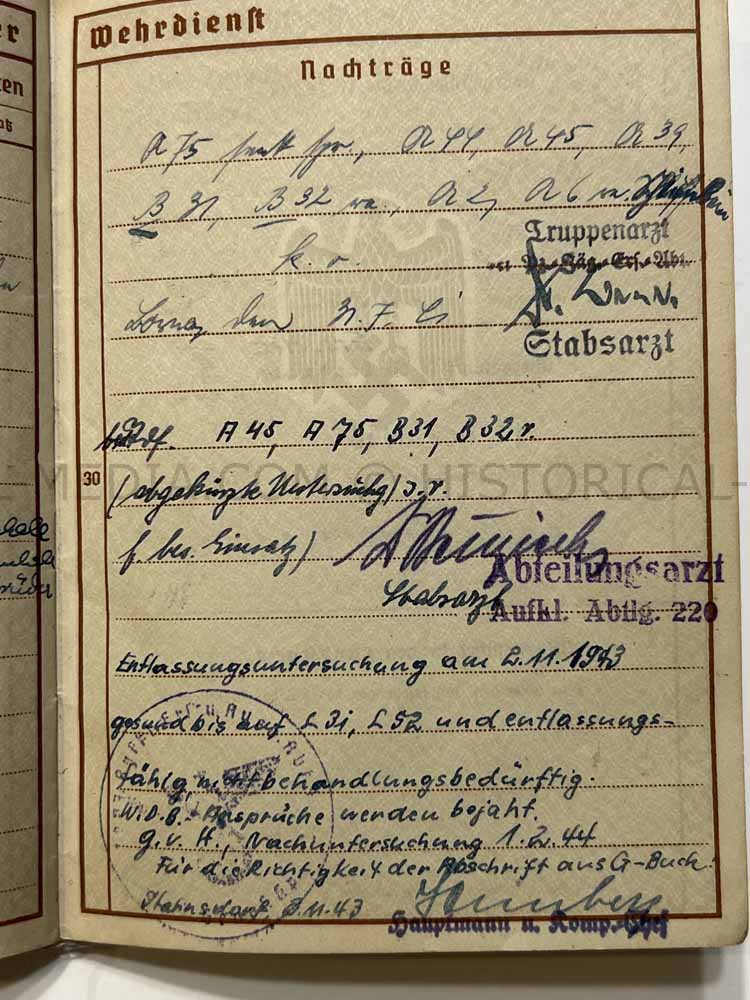 er
Wehrdienst
ten
Nachträge
A 75 A 44, A 45, A 39,
B 31, B 32 va., A 2, A 6 va.
Truppenarzt
Pz.-Jäg.-Ers.-Abt.
k. v.
Borna, den 31. 7.
Stabsarzt
A 45, A 75, B 31, B 32 v.
30
MEDIA.COM © HISTORICAL-
(abgekürzte Untersuchg)
f. bes. Einsatz)
Abteilungsarzt
Stabsarzt
Aufkl. Abtlg. 220
Entlassungsuntersuchung am 2.11.1943
gesund bis auf L 31, L 52 und entlassungs-
fähig, nicht behandlungsbedürftig.
W.D.B.-Ansprüche werden bejaht.
g.v. H., Nachuntersuchung 1.2.44
Für die Richtigkeit der Abschrift aus G-Buch:
Stahnsdorf, 11.43
Hauptmann u. Komp.-Chef